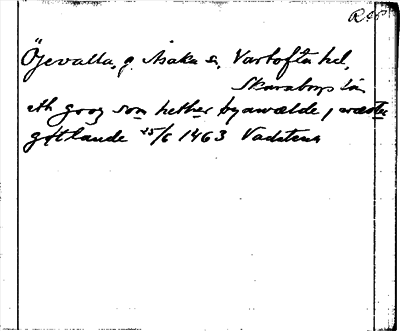 Rep
Öjevalla, g. Åsaka sn, Vartofta hd,
Skaraborgs län
eth gooz som hether øyawælde i wæster
gøtlande 25/6 1463 Vadstena